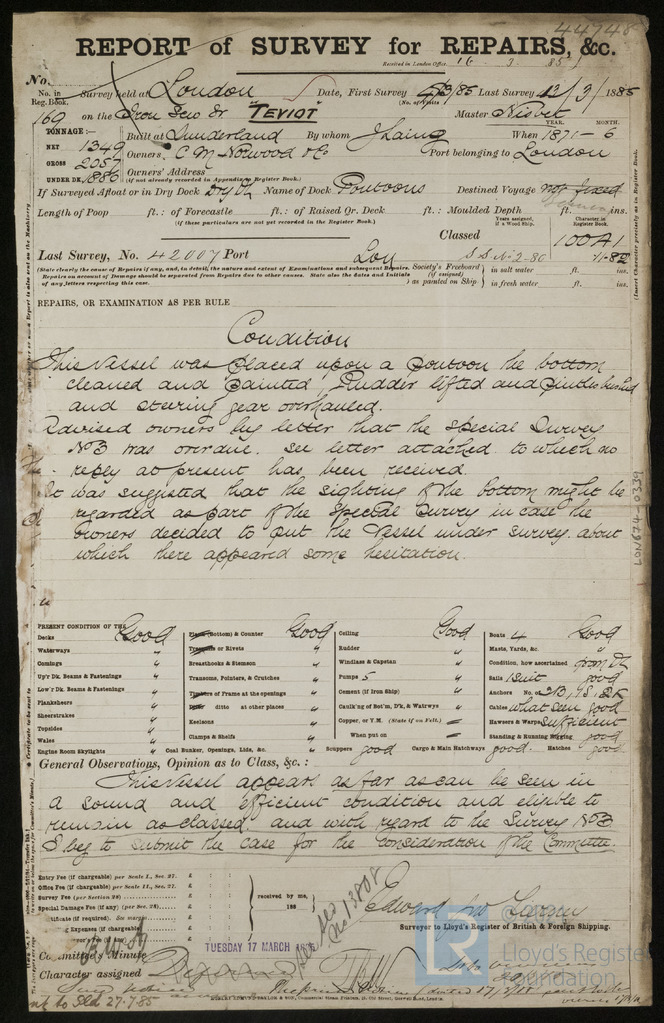 44748
REPORT of SURVEY for REPAIRS, &c.
Received in London Office 16 . 3 . 85
No.
No. in Reg. Book. Survey held at London Date, First Survey /3/85 Last Survey 13/3/1885
(No. of Visits )
169 on the Iron Scw Sr "TEVIOT" Master Nisbet
TONNAGE:— YEAR. MONTH.
NET 1349 Built at Sunderland By whom J Laing When 1871-6
GROSS 2057 Owners C M Norwood & Co Port belonging to London
UNDER DK. 1886 Owners' Address
(if not already recorded in Appendix to Register Book.)
If Surveyed Afloat or in Dry Dock Dry Dk Name of Dock Pontoons Destined Voyage not fixed
Length of Poop ft.: of Forecastle ft.: of Raised Qr. Deck ft.: Moulded Depth ft. ins.
(if these particulars are not yet recorded in the Register Book.)
Years assigned, if a Wood Ship. Character in Register Book.
Classed 100A1
Last Survey, No. 42007 Port Lon SS No 2-80 11-82
(State clearly the cause of Repairs if any, and, in detail, the nature and extent of Examinations and subsequent Repairs.
Repairs on account of Damage should be separated from Repairs due to other causes. State also the dates and initials
of any letters respecting this case.
Society's Freeboard (if assigned) as painted on Ship
in salt water ft. ins.
in fresh water ft. ins.
(Insert Character precisely as in Register Book.
REPAIRS, OR EXAMINATION AS PER RULE
Condition
This Vessel was placed upon a pontoon the bottom
cleaned and painted, Rudder lifted and pintles bushed
and steering gear overhauled.
Advised owners by letter that the Special Survey
No 3 was overdue. see letter attached to which no
reply at present has been received.
It was suggested that the sighting of the bottom might be
regarded as part of the Special Survey in case the
Owners decided to put the Vessel under survey. about
which there appeared some hesitation.
LON674-0339
PRESENT CONDITION OF THE
Decks Good
Waterways "
Comings "
Up'r Dk. Beams & Fastenings "
Low'r Dk. Beams & Fastenings "
Planksheers "
Sheerstrakes "
Topsides "
Wales "
Engine Room Skylights "
Plank (Bottom) & Counter Good
Treenails or Rivets "
Breasthooks & Stemson "
Transoms, Pointers, & Crutches "
Timbers of Frame at the openings "
Ditto ditto at other places "
Keelsons "
Clamps & Shelfs "
Coal Bunker, Openings, Lids, &c. "
Ceiling Good
Rudder "
Windlass & Capstan "
Pumps 5 "
Cement (if Iron Ship) "
Caulk'ng of Bot'm, D'k, & Watrwys "
Copper, or Y.M. (State if on Felt.)
When put on
Scuppers good Cargo & Main Hatchways good.
Boats 4 Good
Masts, Yards, &c. "
Condition, how ascertained from Dk
Sails 1 Suit good
Anchors No. 3B, 1S, 2K
Cables what seen good
Hawsers & Warps sufficient
Standing & Running Rigging good
Hatches good
General Observations, Opinion as to Class, &c.:
This Vessel appears as far as can be seen in
a sound and efficient condition and eligible to
remain as classed. and with regard to the Survey No 3
I beg to submit the case for the consideration of the Committee.
Entry Fee (if chargeable) per Scale I., Sec. 27. £
Office Fee (if chargeable) per Scale II., Sec. 27. £
Survey Fee (per Section 28) £
Special Damage Fee (if any) (per Sec. 28) £
Certificate (if required). £
Expenses (if chargeable) £
received by me,
188
Surveyor to Lloyd's Register of British & Foreign Shipping.
Committee's Minute TUESDAY 17 MARCH
Character assigned Deferred
27.7.85
© 2020
Lloyd's Register
Foundation